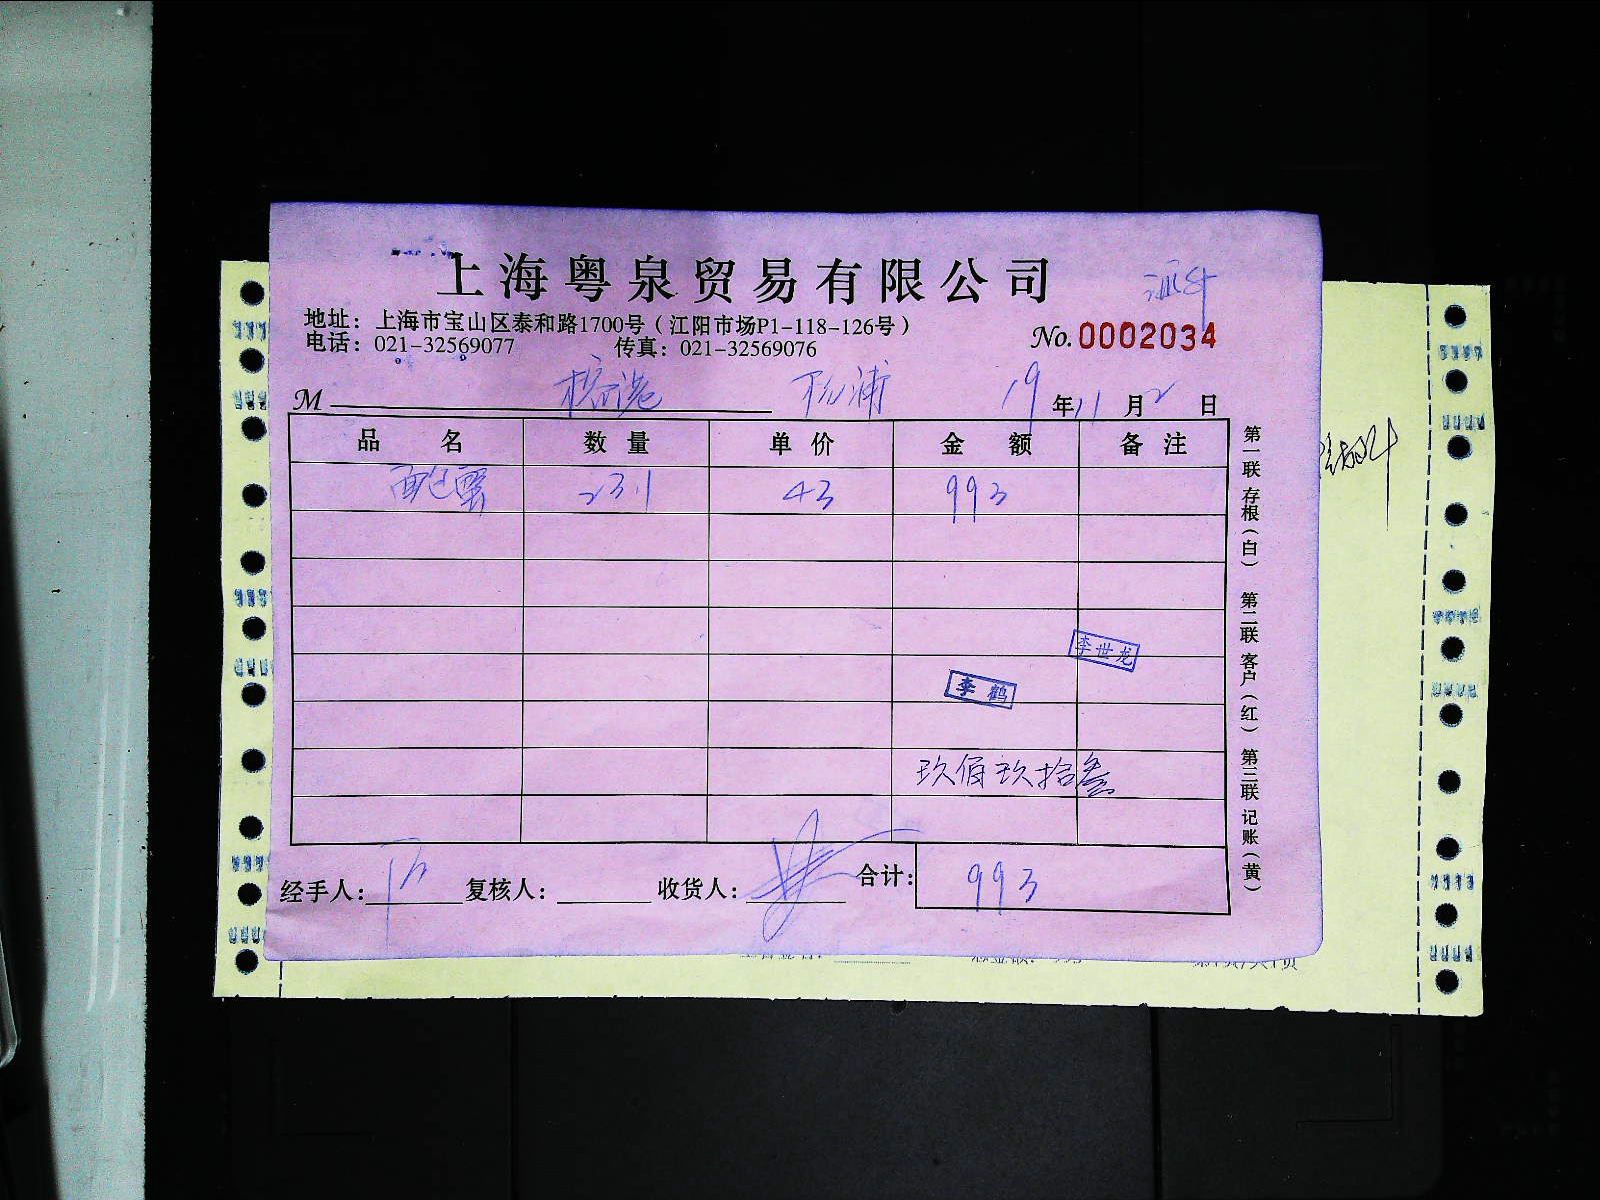 上海粤泉贸易有限公司
地址：上海市宝山区泰和路1700号（江阳市场P1-118-126号）
No. 0002034
电话：021-32569077 传真：021-32569076
M 杨浦 19年11月2日
品名 数量 单价 金额 备注
面包蟹 23.1 43 993
李世龙
李鹤
玖佰玖拾叁
经手人： 复核人： 收货人： 合计： 993
第一联 存根（白） 第二联 客户（红） 第三联 记账（黄）